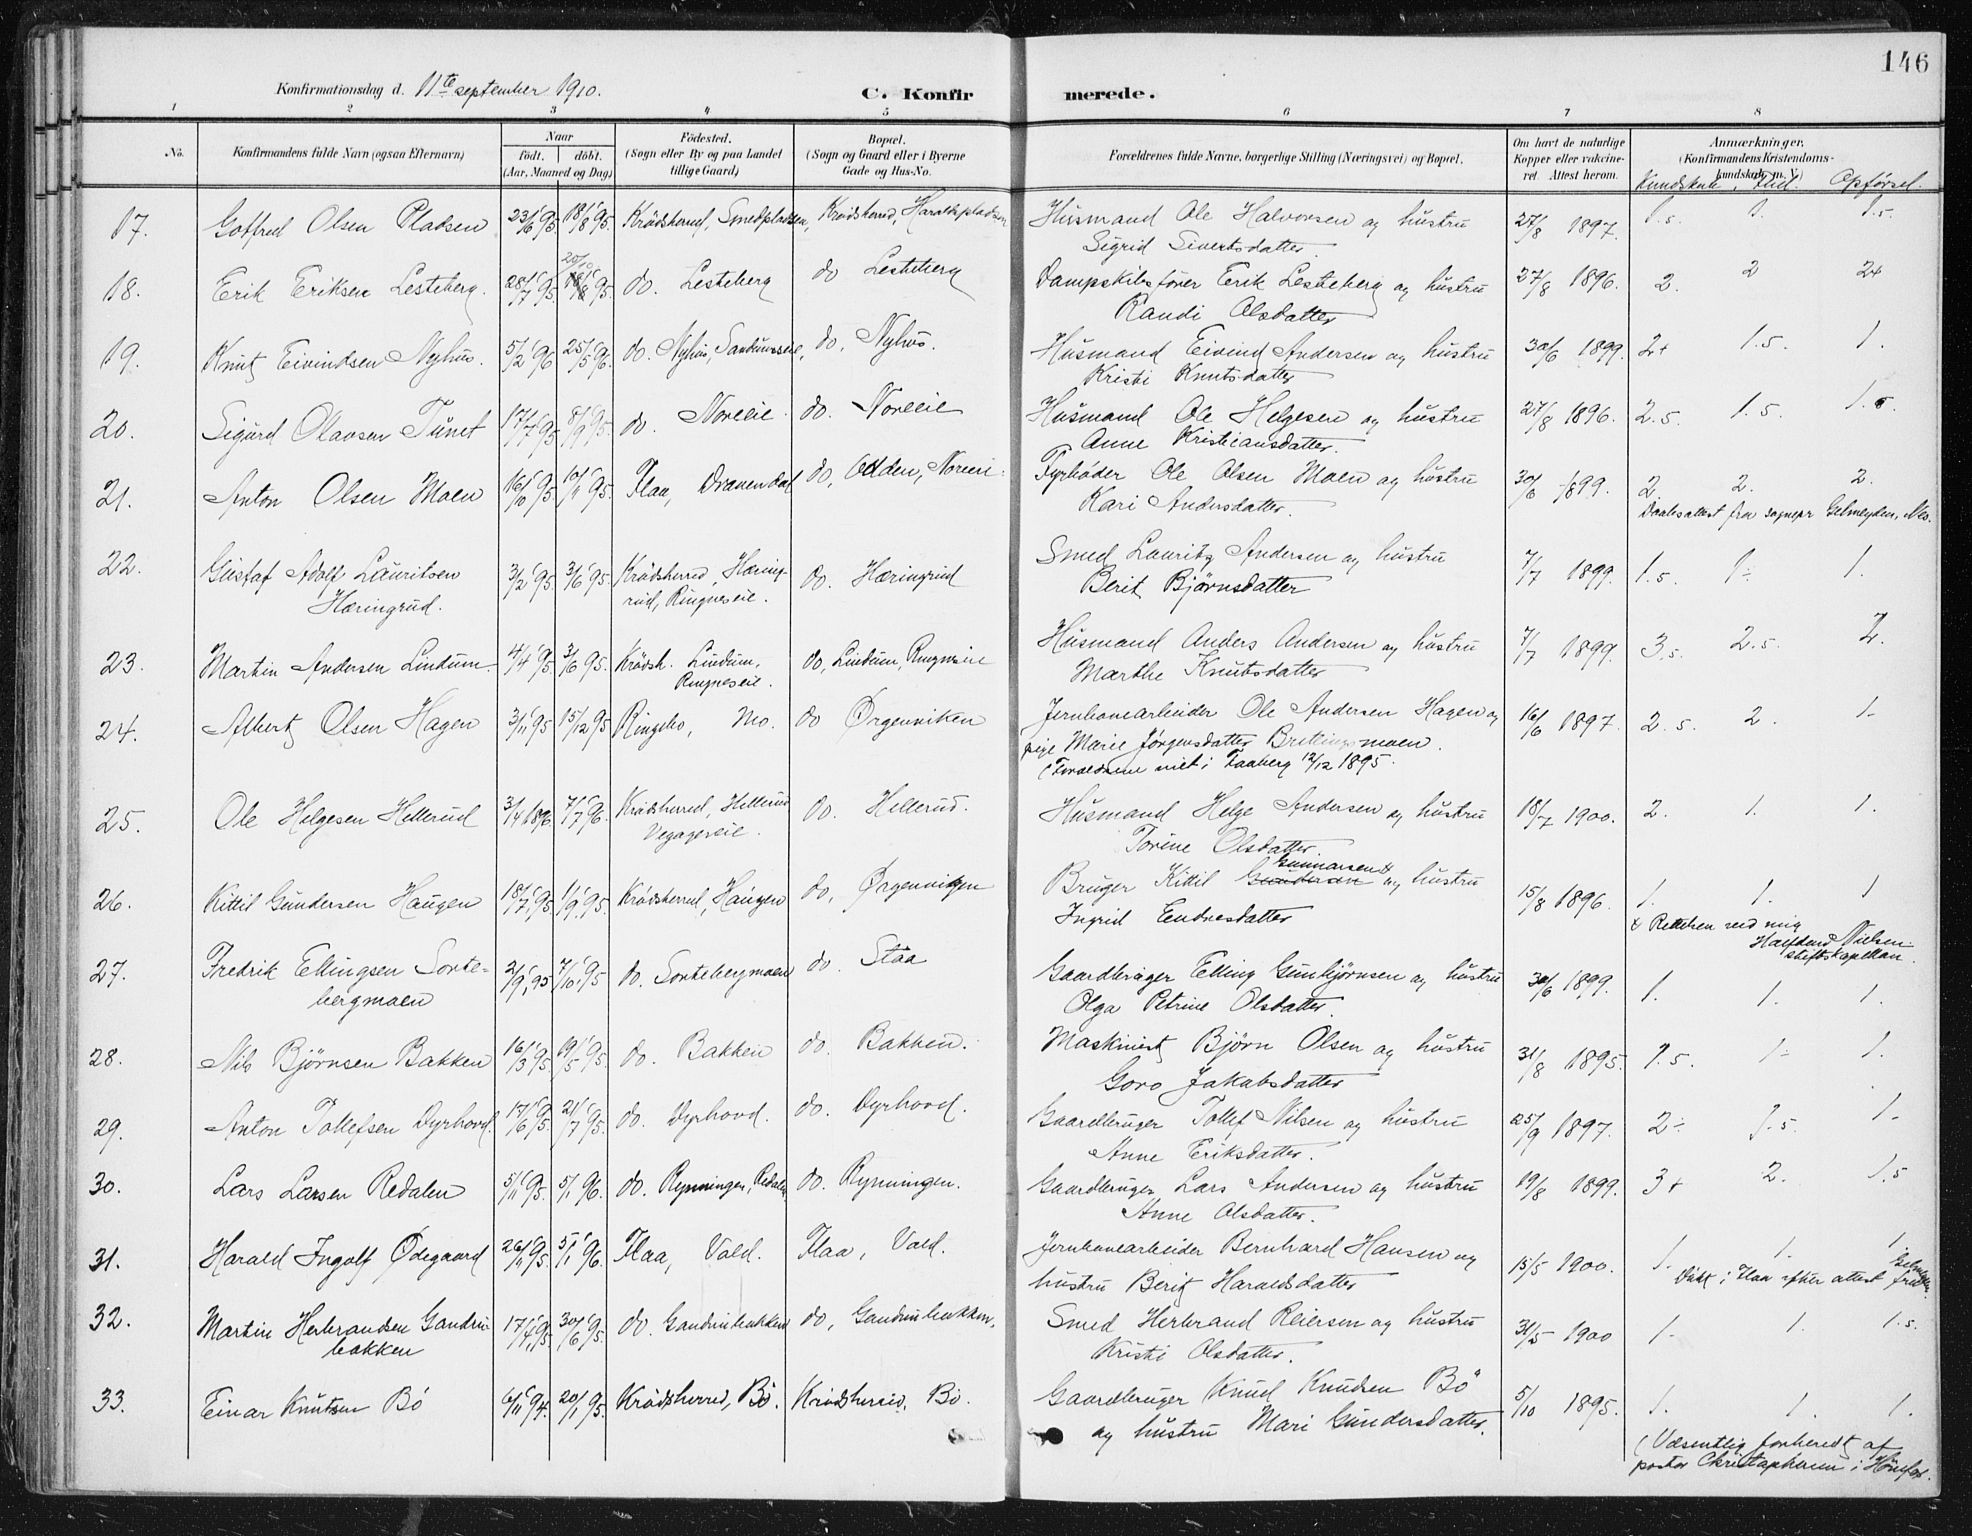 146
Konfirmationsdag d. 11te september 1910.
C. Konfirmerede.
1 2 3 4 5 6 7 8
No.
Konfirmandens fulde Navn (ogsaa Efternavn)
Naar
födt. döbt.
(Aar, Maaned og Dag)
Födested.
(Sogn eller By og paa Landet
tillige Gaard)
Bopæl.
(Sogn og Gaard eller i Byerne
Gade og Hus-No.
Forældrenes fulde Navne, borgerlige Stilling (Næringsvei) og Bopæl.
Om havt de naturlige
Kopper eller vakcine-
ret. Attest herom.
Anmærkninger.
(Konfirmandens Kristendoms-
kundskab m. V.)
Kundskab, Flid Opførsel.
17. Gotfred Olsen Pladsen 23/6 95. 18/8 95. Krödsherred, Smedpladsen, Krødsherred, Haraldspladsen Husmand Ole Halvorsen og hustru 27/8 1897. 1.5. 1. 1.5.
Sigrid Sivertsdatter
18. Erik Eriksen Lesteberg. 28/7 95. 20/10 18/8 95. do. Lesteberg do Lesteberg Dampskibsfører Erik Lesteberg og hustru 27/8 1896. 2. 2 2+
Randi Olsdatter
19. Knut Eivindsen Nyhus. 5/2 96 25/5 96. do. Nyhus, do. Nyhus. Husmand Eivind Andersen og hustru 30/6 1899. 2+ 1.5. 1.
Kristi Knutsdatter
20. Sigurd Olavsen Tunet 17/7 95. 8/9 95. do. Noreeie do. Noreeie Husmand Ole Helgesen og hustru 27/8 1896. 2.5. 1.5. 1.5.
Anne Kristiansdatter.
21. Anton Olsen Moen 16/10 95. 10/11 95. Flaa, do, Odden, Fyrbøder Ole Olsen Moen og hustru 30/6 1899. 2 2. 2.
Kari Andersdatter. Daabsattest fra sognepr Gelmeyden, Nes.
22. Gustaf Adolf Lauritsen 3/2 95. 3/6 95. Krödsherred, Hæring- do. Hæringrud Smed Lauritz Andersen og hustru 7/7 1899. 1.5. 1÷ 1.
Hæringrud. rud, Ringneseie. Berit Bjørnsdatter
23. Martin Andersen Lindum 4/4 95. 3/6 95. Krödsh. Lindum, do, Lindum, Ringneseie Husmand Anders Andersen og hustru 7/7 1899. 3.5. 2.5. 2.
Ringneseie. Marthe Knutsdatter
24. Albert Olsen Hagen 3/11 95 15/12 95 Ringebo, Mo. do Ørgenviken Jernbanearbeider Ole Andersen Hagen og 16/6 1897. 2.5. 2. 1-
pige Marie Jørgensdatter Brettingsmoen.
(Forældrene viet i Faaberg 12/12 1895.
25. Ole Helgesen Hellerud 3/4 1896 7/7 96. Krødsherred, Hellerud do. Hellerud. Husmand Helge Andersen og hustru 18/7 1900. 2. 1. 1.
Torine Olsdatter.
26. Kittil Gundersen Haugen 18/7 95. 1/9 95. Krødsherred, Haugen do, Ørgenviken Bruger Kittil Gundersen Gunnarsen x og hustru 15/8 1896. 1. 1. 1
Ingrid Endresdatter x Rettelsen ved mig
Halfdand Nielsen.
stiftskapellan.
27. Fredrik Ellingsen Sorte- 2/9 95 7/10 95 do. Sortebergmoen do. Staa Gaardbruger Elling Gunbjørnsen og hustru 30/6 1899. 1. 1. 1.
bergmoen Olga Petrine Olsdatter.
28. Nils Björnsen Bakken 16/3 95. 19/5 95. do. Bakken do. Bakken. Maskinist Björn Olsen og hustru 31/8 1895. 1.5. 1÷ 1.
Goro Jakobsdatter
29. Anton Tollefsen Dyrhovd. 17/6 95. 21/7 95. do. Dyrhovd. do. Dyrhovd. Gaardbruger Tollef Nilsen og hustru 25/9 1897. 2÷ 1.5. 1-
Anne Eriksdatter.
30. Lars Larsen Redalen 5/11 95. 5/1 96. do. Rynningen, Redalen do. Rynningen. Gaardbruger Lars Andersen og hustru 19/8 1899. 3+ 2. 1.5
Anne Olsdatter.
31. Harald Ingolf Ødegaard 26/11 95. 5/1 96. Flaa, Vald. Flaa, Vald. Jernbanearbeider Bernhard Hansen og 15/5 1900. 1. 1. 1.
hustru Berit Haraldsdatter Døbt i Flaa efter attest fra Gelmeyden.
32. Martin Herbrandsen Gandru- 17/4 95. 30/6 95. do. Gandrubakken do, Gandrubakken, Smed Herbrand Reiersen og hustru 31/5 1900 1- 1. 1.5.
bakken Kristi Olsdatter.
33. Einar Knutsen Bö 6/11 94. 20/1 95. Krödsherred, Bö. Krødsherred, Bö. Gaardbruger Knud Knudsen Bö 5/10 1895. 1. 1. 1.
og hustru Mari Gundersdatter. (Væsentlig forberedt af
pastor Christophersen i Hönefos.